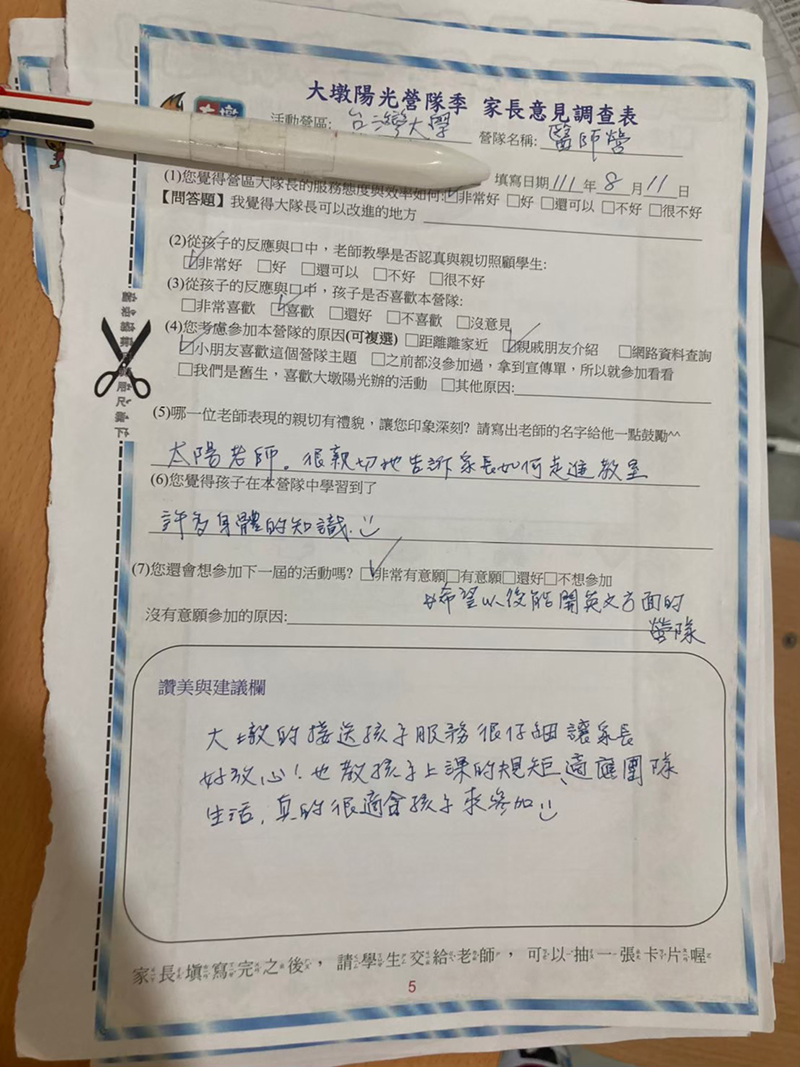 大墩陽光營隊季 家長意見調查表
大墩
活動營區: 台灣大學 營隊名稱: 醫師營
填寫日期 111 年 8 月 11 日
(1)您覺得營區大隊長的服務態度與效率如何: ☑非常好 □好 □還可以 □不好 □很不好
【問答題】我覺得大隊長可以改進的地方
(2)從孩子的反應與口中，老師教學是否認真與親切照顧學生:
☑非常好 □好 □還可以 □不好 □很不好
(3)從孩子的反應與口中，孩子是否喜歡本營隊:
□非常喜歡 ☑喜歡 □還好 □不喜歡 □沒意見
(4)您考慮參加本營隊的原因(可複選) □距離離家近 ☑親戚朋友介紹 □網路資料查詢
☑小朋友喜歡這個營隊主題 □之前都沒參加過，拿到宣傳單，所以就參加看看
□我們是舊生，喜歡大墩陽光辦的活動 □其他原因:
(5)哪一位老師表現的親切有禮貌，讓您印象深刻? 請寫出老師的名字給他一點鼓勵^^
太陽老師。很親切地告訴家長如何走進教室
(6)您覺得孩子在本營隊中學習到了
許多身體的知識.
(7)您還會想參加下一屆的活動嗎? ☑非常有意願□有意願□還好□不想參加
希望以後能開英文方面的
營隊
沒有意願參加的原因:
讚美與建議欄
大墩的接送孩子服務很仔細讓家長
好放心！也教孩子上課的規矩、適應團隊
生活，真的很適合孩子來參加
家長填寫完之後，請學生交給老師，可以抽一張卡片喔
5